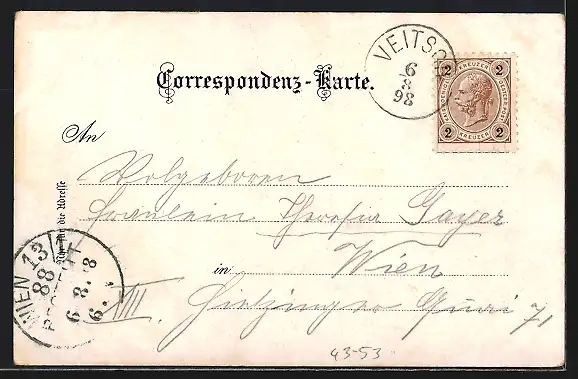 Correspondenz-Karte.
VEITSC
6
8
98
2 KREUZER 2
2 KREUZER 2
An
Wolgeboren
Fräulein Theresia Gayer
in Wien
XIII Hietzinger Quai 71
Nur für die Adresse
WIEN 13/1
88
6. 8. 98
6.
43-53